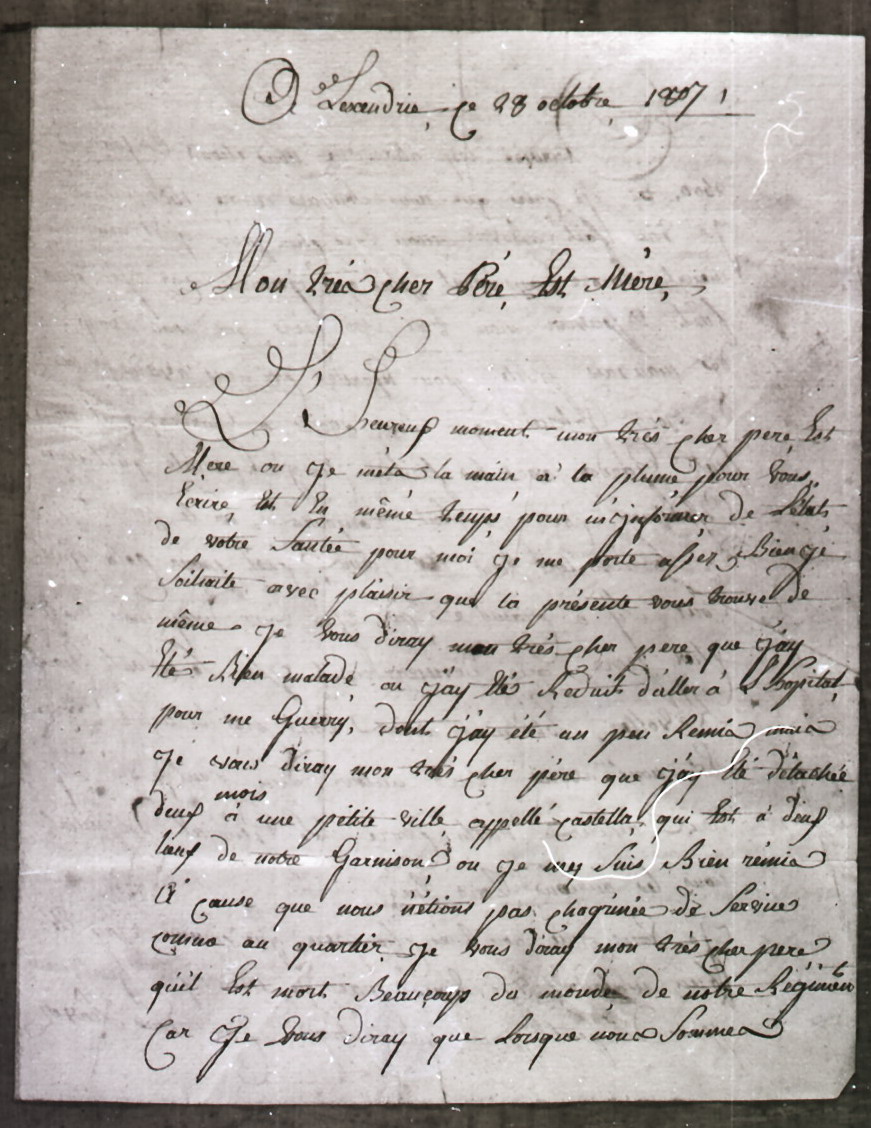 Alexendrie, ce 28 octobre 1807
Mon très cher Péré, Est Mére,
L'heureuf moment mon très cher pere Est
Mere ou Je méta la main a la plume pour vous
Ecrire, Est En même temps pour m'injformer de L'état
de votre Santée pour moi Je me porte asser Bien Je
Soihaite avec plaisir que la présente vous trouve de
même Je vous diray mon très cher pere que J'ay
Eté Bien malade ou J'ay Eté Reduit d'aller a L'hopital
pour me Guerry, dont J'ay été un peu Remia maia
Je vous diray mon très cher pére que J'ay Eté détachée
deuf mois à une pétite ville appellé castella, qui Est a deuf
lieuf de notre Garnison ou Je mey Suis Bien rémia
A cause que nous n'étions pas chaginée de Service
comme au quartier Je vous diray mon très cher pere
quil Est mort Beaucoup du monde de notre Régiment
Car Je vous diray que lorsque nous Sommea